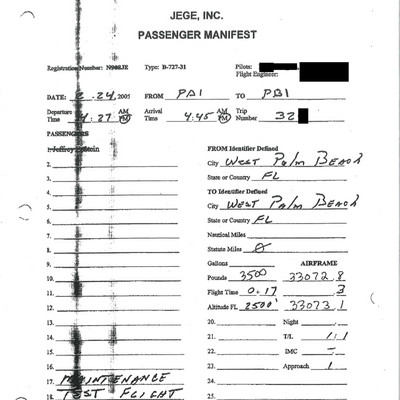 JEGE, INC.
PASSENGER MANIFEST
Registration Number: N908JE Type: B-727-31 Pilots:
Flight Engineer:
DATE: 2.24, 2005 FROM PBI TO PBI
Departure Time 4:27 AM PM Arrival Time 4:45 AM PM Trip Number 32
PASSENGERS
FROM Identifier Defined
1. Jeffrey Epstein
City WEST PALM BEACH
2.
State or Country FL
3.
4.
TO Identifier Defined
5.
City WEST PALM BEACH
6.
State or Country FL
7.
Nautical Miles
8.
Statute Miles 0
9.
Gallons AIRFRAME
10.
Pounds 3500 33072.8
11.
Flight Time 0.17 .3
12.
Altitude FL 2500' 33073.1
13.
14.
20. Night
15.
21. T/L 1/1
16.
22. IMC -
17. MAINTENANCE
23. Approach 1
18. TEST FLIGHT
24.
25.